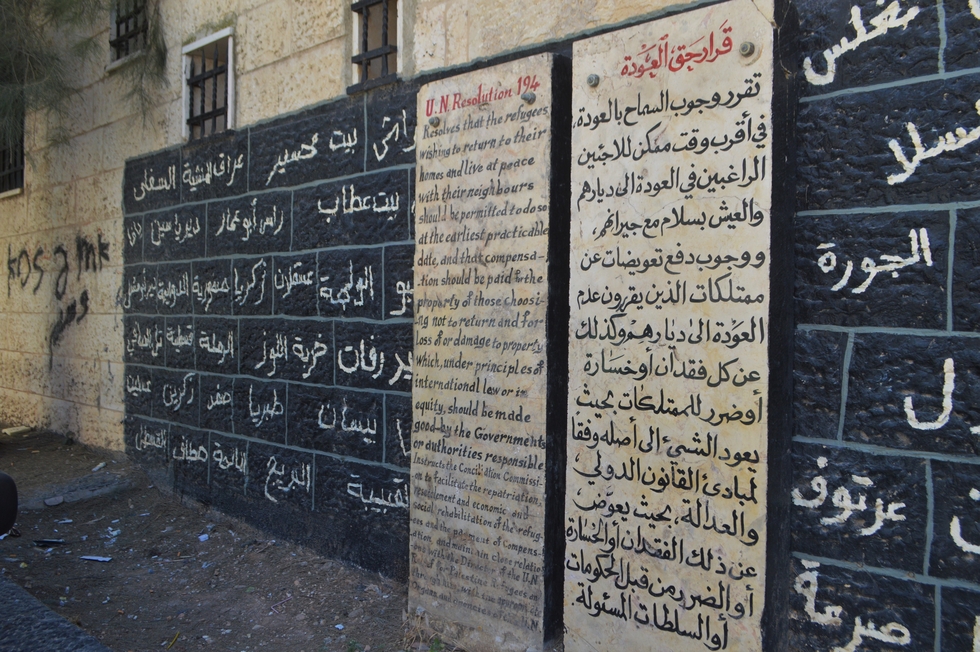 U.N. Resolution 194
Resolves that the refugees
wishing to return to their
homes and live at peace
with their neighbours
should be permitted to do so
at the earliest practicable
date, and that compensa-
tion should be paid for the
property of those choosi-
ng not to return and for
loss of or damage to property
which, under principles of
international law or in
equity, should be made
good by the Governments
or authorities responsible
Instructs the Conciliation Commissi-
on to facilitate the repatriation,
resettlement and economic and
social rehabilitation of the refug-
ees and the payment of Compens-
ation and maintain close relatio-
قرار حق العودة
تقرر وجوب السماح بالعودة،
في أقرب وقت ممكن للاجئين
الراغبين في العودة الى ديارهم
والعيش بسلام مع جيرانهم،
ووجوب دفع تعويضات عن
ممتلكات الذين يقررون عدم
العودة الى ديارهم وكذلك
عن كل فقدان أو خسارة
أو ضرر للممتلكات بحيث
يعود الشئ إلى أصله وفقا
لمبادئ القانون الدولي
والعدالة، بحيث يعوّض
عن ذلك الفقدان أو الخسارة
أو الضرر من قبل الحكومات
أو السلطات المسئولة.
بيت محسير
عراق المنشية
بيت عطاب
راس أبو عمار
ديرياسين
الولجة
عسقلان
زكريا
الدوايمة
رفات
خربة اللوز
الرملة
بيسان
طبريا
صفد
زكرين
القبيبة
البريج
المفلس
الجورة
عرتوف
صرعة
KDS 2 MK